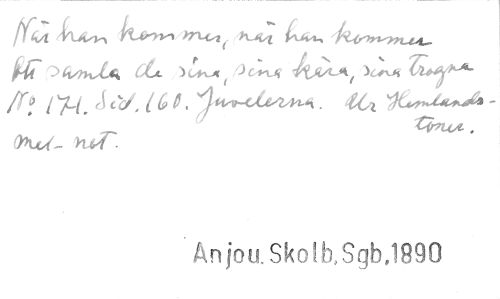 När han kommer, när han kommer
Att samla de sina, sina kära, sina trogna
No. 171. Sid. 160. Juvelerna. Ur Hemlands-
toner.
mel- not.
Anjou. Skolb, Sgb, 1890